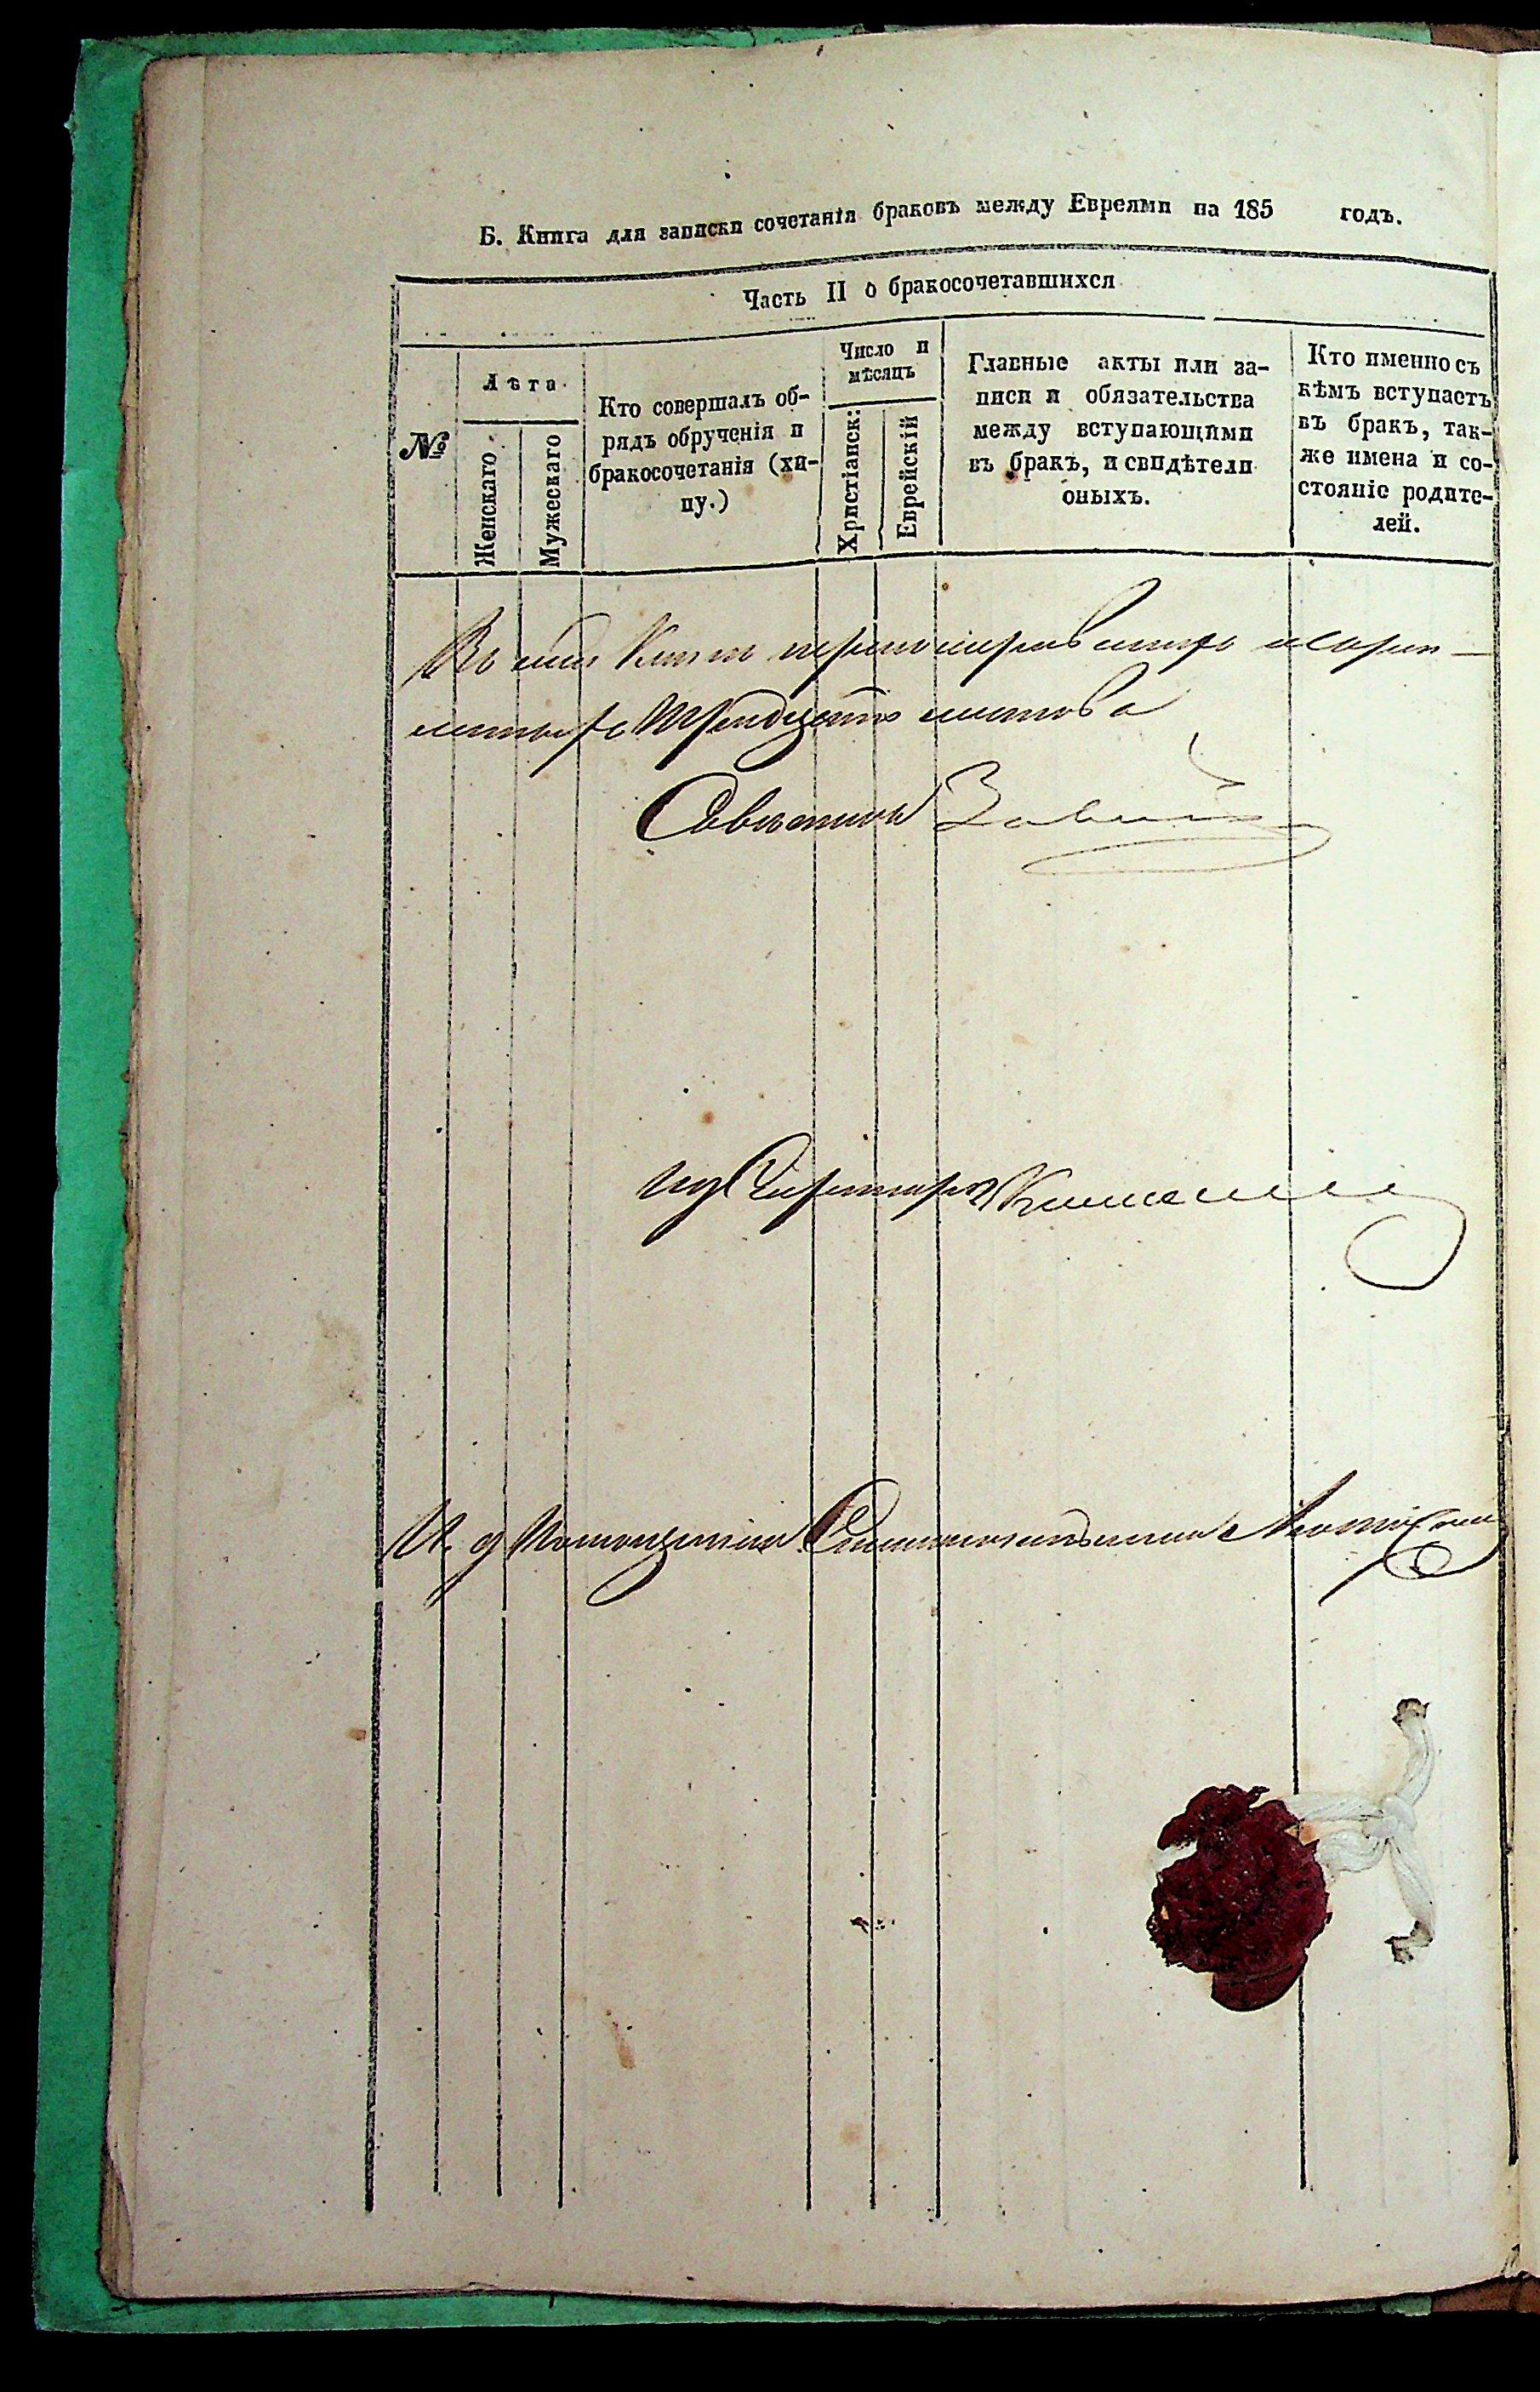 Б. Книга для записки сочетанія браковъ между Евреями на 185 годъ.
Часть II о бракосочетавшихся
№
Лѣта.
Женскаго.
Мужескаго
Кто совершалъ об-
рядъ обрученія и
бракосочетанія (хи-
пу.)
Число и
мѣсяцъ
Христіанск:
Еврейскій
Главные акты или за-
писи и обязательства
между вступающими
въ бракъ, и свидѣтели
оныхъ.
Кто именно съ
кѣмъ вступаетъ
въ бракъ, так-
же имена и со-
стояніе родите-
лей.
Въ сей Книгѣ перенумерованныхъ и скреп-
ленныхъ Тридцать листовъ
Совѣтникъ
Секретарь
И. д. Помощника Столоначальника